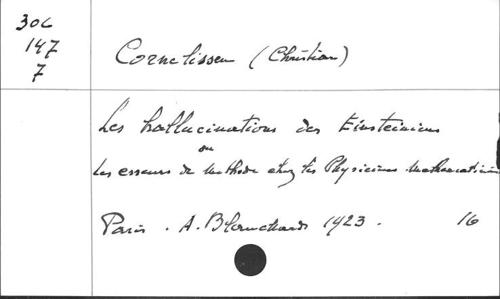 306
147
7
Cornelissen (Christian)
Les hallucinations des Einsteiniens
ou
Les erreurs de méthode chez les Physiciens-Mathématiciens
Paris. A. Blanchard 1923. 16